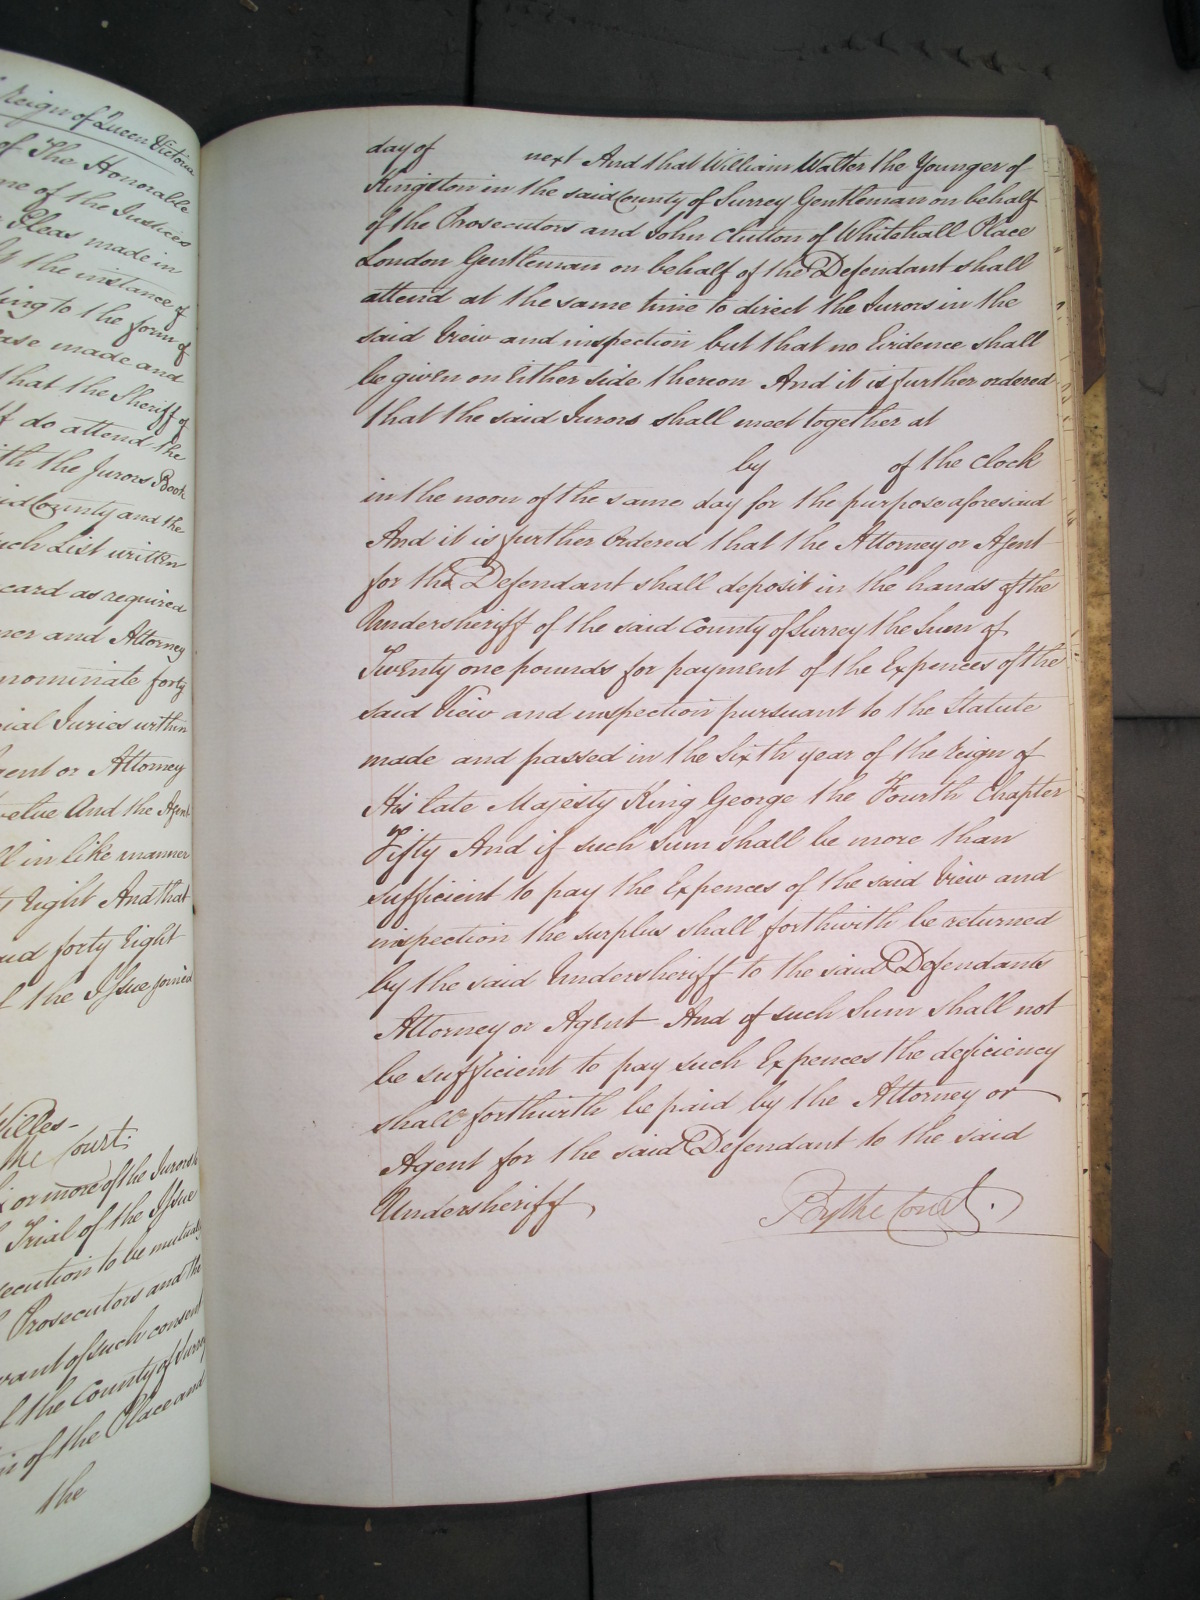 Reign of Queen Victoria
of The Honorable
me of the Justices
Pleas made in
the instance of
ting to the form of
ase made and
that the Sheriff of
do attend the
th the Jurors Book
id County and the
uch List written
card as required
ner and Attorney
nominate forty
cial Juries within
gent or Attorney
welve And the Agent
ll in like manner
Eight And that
aid forty Eight
f the Issue joined
Willes
the Court
or more of the Jurors
Trial of the Issue
ecution to be mutually
Prosecutors and the
want of such consent
f the County of Surrey
of the Place and
the
day of next And that William Walter the Younger of
Kingston in the said County of Surrey Gentleman on behalf
of the Prosecutors and John Clutton of Whitehall Place
London Gentleman on behalf of the Defendant shall
attend at the same time to direct the Jurors in the
said View and inspection but that no Evidence shall
be given on Either side thereon And it is further ordered
that the said Jurors shall meet together at
by of the Clock
in the noon of the same day for the purpose aforesaid
And it is further Ordered that the Attorney or Agent
for the Defendant shall deposit in the hands of the
Undersheriff of the said County of Surrey the Sum of
Twenty one pounds for payment of the Expences of the
said View and inspection pursuant to the Statute
made and passed in the Sixth year of the reign of
His late Majesty King George the Fourth Chapter
Fifty And if such Sum shall be more than
sufficient to pay the Expences of the said View and
inspection the surplus shall forthwith be returned
by the said Undersheriff to the said Defendants
Attorney or Agent And if such Sum shall not
be sufficient to pay such Expences the deficiency
shall forthwith be paid by the Attorney or
Agent for the said Defendant to the said
Undersheriff,
By the Court.